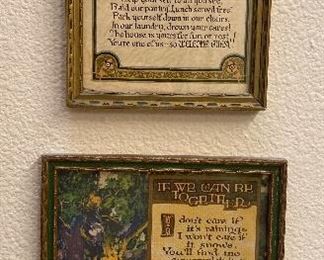 Help yourself to all you see,
Raid our pantry, Lunch served free.
Park yourself down in our chairs.
In our laundry, drown your cares!
The house is yours for fun or rest!
You're one of us - so WELCOME GUEST
IF WE CAN BE
TOGETHER
I don't care if
it's raining,
I won't care if
it snows,
You'll find me